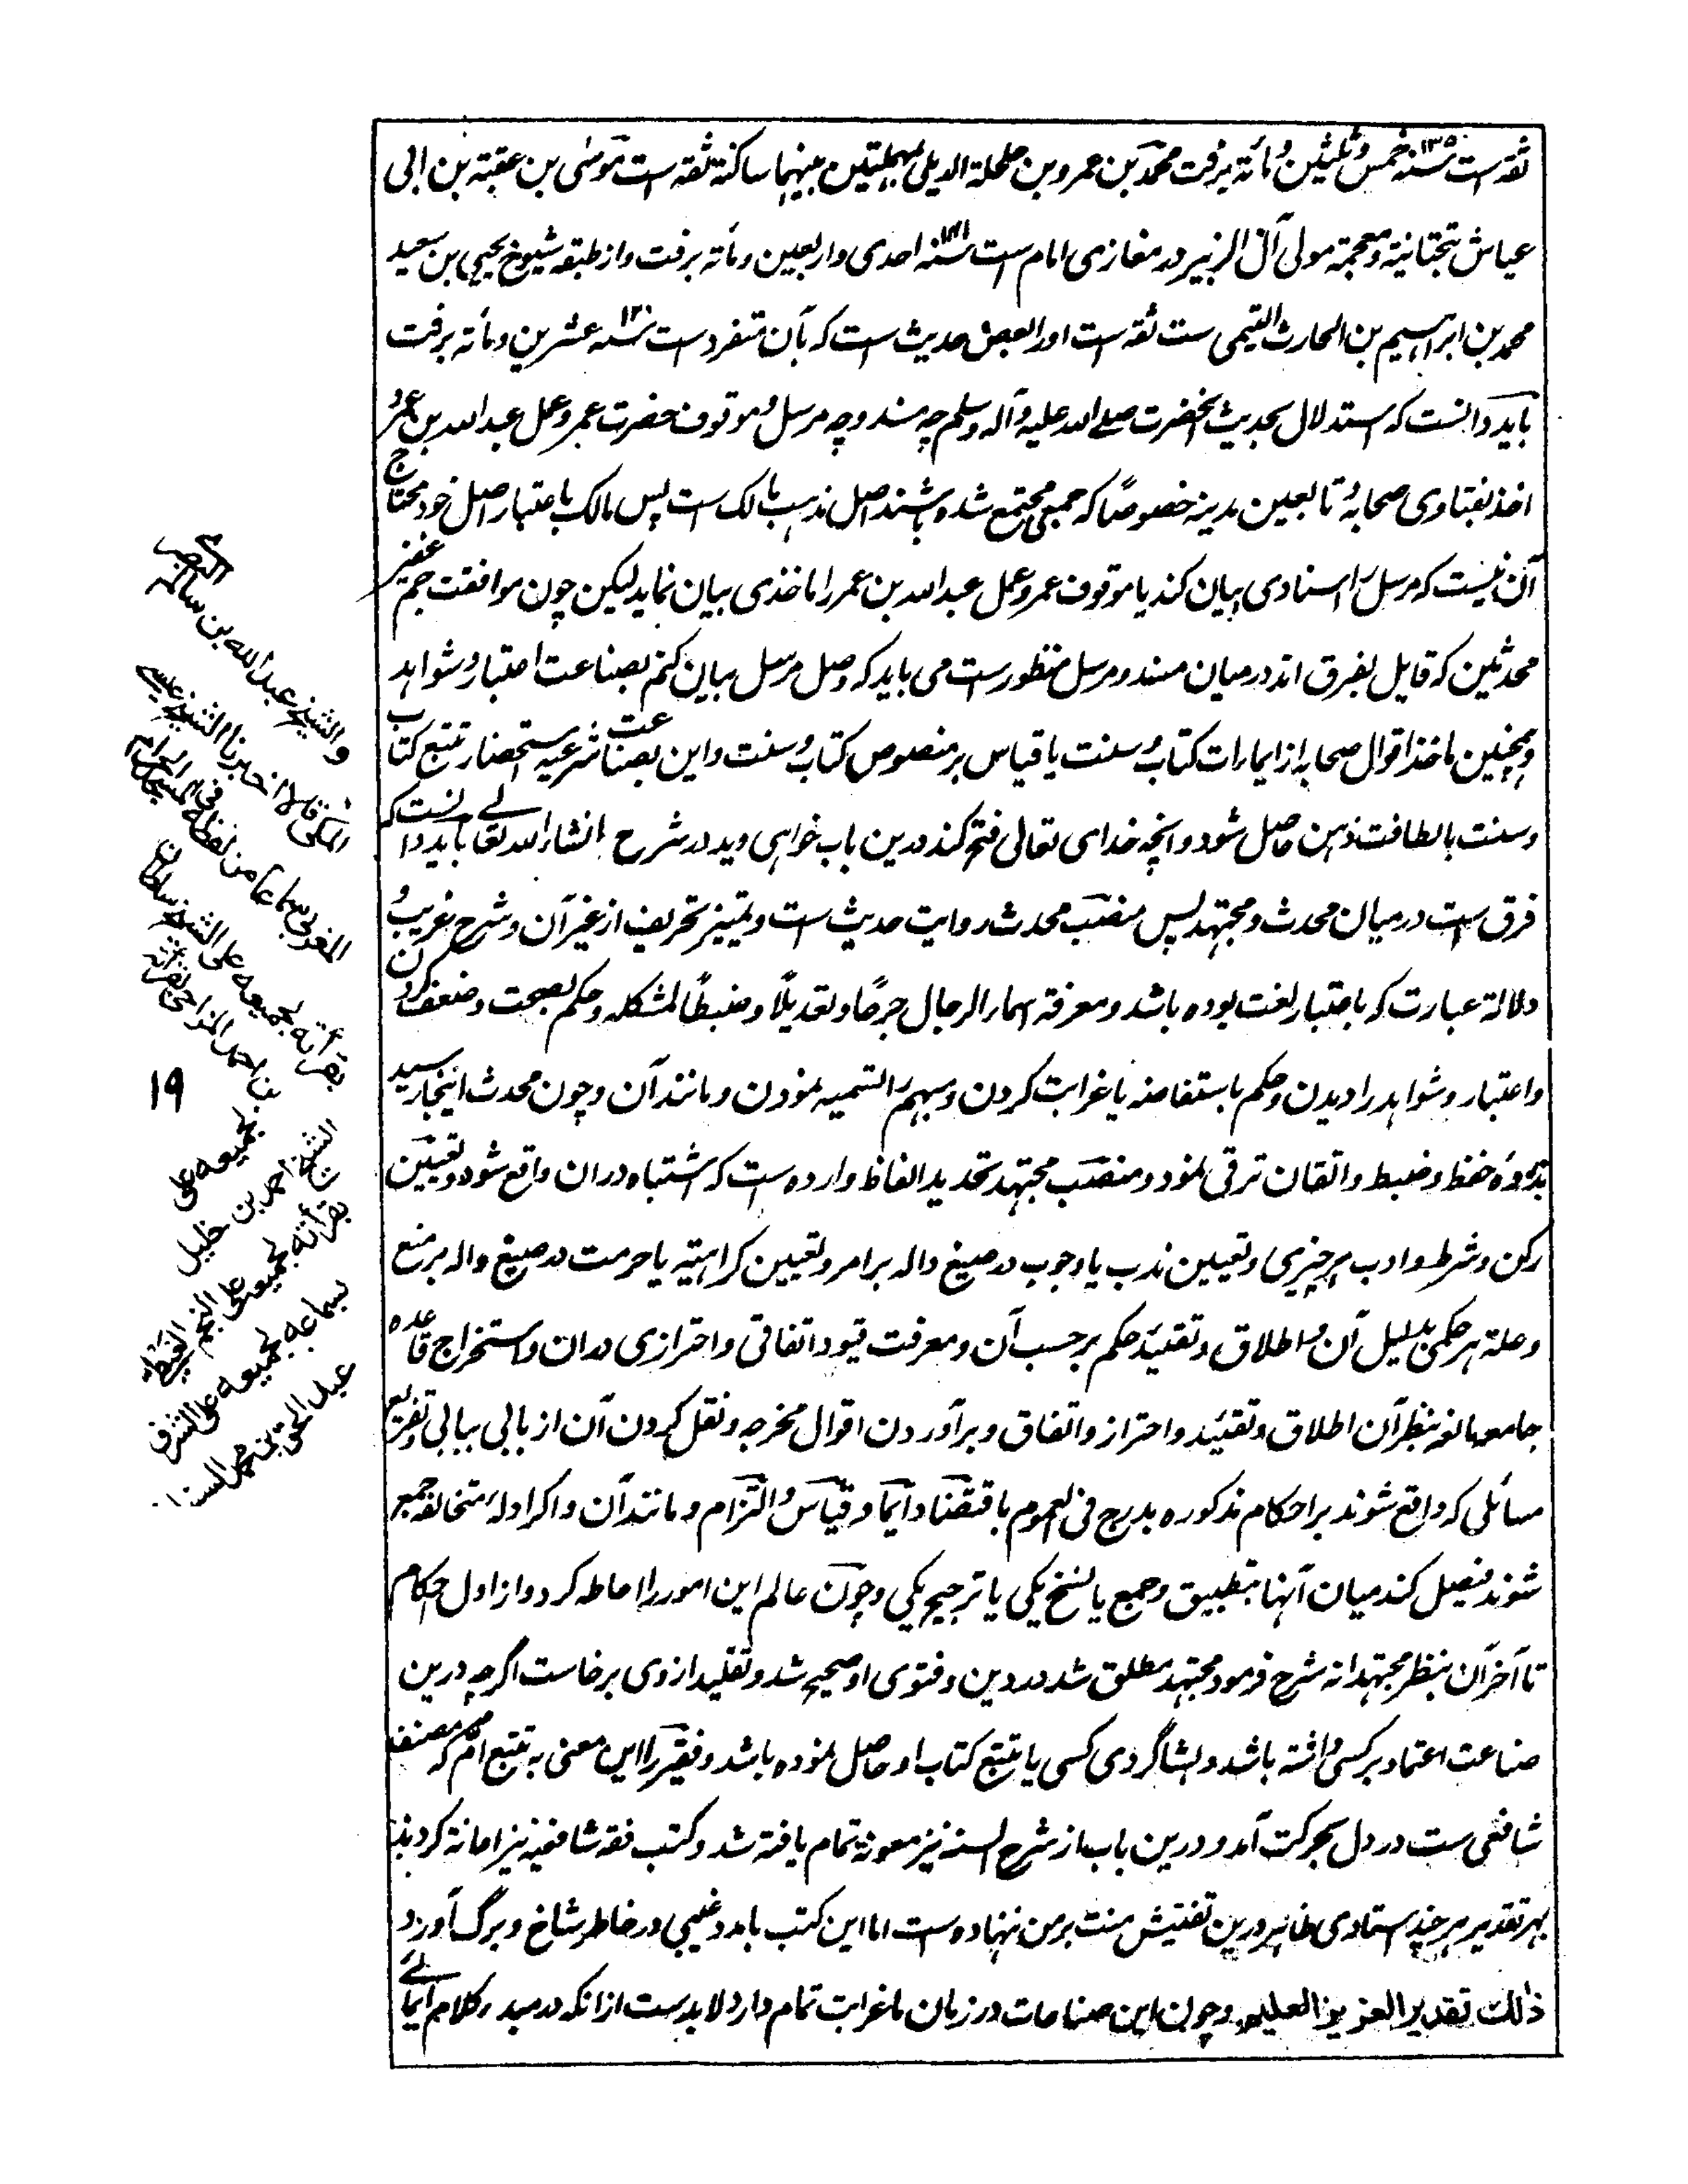 ثقه است ۱۳۵ سنه خمس و ثلثین و مأته برفت محمد بن عمرو بن حلحلة الدیلی بمهملتین بینهما ساکنة ثقه است موسی بن عقبة بن ابی
عیاش بتحتانیة و معجمة مولی آل الزبیر در مغازی امام ست ۱۴۱ سنه احدی و اربعین و مأته برفت و از طبقه شیوخ یحیی بن سعید
محمد بن ابراهیم بن الحارث التیمی ست ثقه است او را بعض حدیث است که بآن متفرد است ۱۲۰ سنه عشرین و مأته برفت
باید دانست که استدلال بحدیث آنحضرت صلے الله علیه و آله وسلم چه مسند و چه مرسل و موقوف حضرت عمر و عمل عبدالله بن عمر و
اخذ بفتاوی صحابه و تابعین مدینه خصوصًا که جمعی مجتمع شده باشند اصل مذهب مالک است پس مالک باعتبار اصل خود محتاج
آن نیست که مرسل را اسنادی بیان کند یا موقوف عمر و عمل عبدالله بن عمر را ماخذی بیان نماید لیکن چون موافقت جم غفیر
محدثین که قایل بفرق اند درمیان مسند و مرسل منظور ست می باید که وصل مرسل بیان کنم بصناعت اعتبار و شواهد
و همچنین ماخذ اقوال صحابه از ایمارات کتاب و سنت یا قیاس بر منصوص کتاب و سنت و این بصناعت شرعیه استحضار تتبع کتاب
و سنت بالطافت ذهن حاصل شود و آنچه خدای تعالی فتح کند درین باب خواهی دید در شرح انشاء الله تعالے باید دانست که
فرق است درمیان محدث و مجتهد پس منصب محدث روایت حدیث ست و تمییز تحریف از غیر آن و شرح غریب و
دلالة عبارت که باعتبار لغت بوده باشد و معرفة اسماء الرجال جرحًا و تعدیلًا و ضبطًا لمشکله و حکم بصحت و ضعف کردن
و اعتبار و شواهد را دیدن و حکم باستفاضه یا غرابت کردن و مبهم را تسمیه نمودن و مانند آن و چون محدث اینجا رسید
بذروهٔ حفظ و ضبط و اتقان ترقی نمود و منصب مجتهد تحدید الفاظ وارده ست که اشتباه دران واقع شود و تعیین
رکن و شرط و ادب هر چیزی و تعیین ندب یا وجوب در صیغ داله بر امر و تعیین کراهیته یا حرمت در صیغ داله بر منع
و علة هر حکمی بدلیل آن و اطلاق و تقیید حکم بر حسب آن و معرفت قیود اتفاقی و احترازی دران و استخراج قاعده
جامعه مانعه بنظر آن اطلاق و تقیید و احتراز و اتفاق و برآوردن اقوال مخرجه و نقل کردن آن از بابی ببابی و تفریع
مسائلی که واقع شوند بر احکام مذکوره بدرج فی العموم باقتضا و ایما و قیاس و التزام و مانند آن و اگر ادلهٔ متخالفه جمع
شوند فیصل کند میان آنها بتطبیق و جمع یا بنسخ یکی یا ترجیح یکی و چون عالم این امور را احاطه کرد و از اول احکام
تا آخر آن بنظر مجتهدانه شرح فرمود مجتهد مطلق شد در دین و فتوی او صحیح شد و تقلید از وی برخاست اگرچه درین
صناعت اعتماد بر کسی داشته باشد و بشاگردی کسی یا تتبع کتاب او حاصل نموده باشد و فقیر را این معنی به تتبع ام که مصنفه
شافعی ست در دل بحرکت آمد و درین باب از شرح السنه نیز معونة تمام یافته شد و کتب فقه شافعیه نیز اعانة کردند
بهر تقدیر هر چند استادی ظاهر درین تفتیش منت بر من ننهاده ست اما این کتب بامدد غیبی در خاطر شاخ و برگ آورد
ذلك تقدیر العزیز العلیم و چون این صناعات در زمان ما غرابت تمام دارد لابد ست از انکه در مبدء کلام ایمائے
والشیخ عبد الله بن سالم البصری
المکی قالا اخبرنا الشیخ عیسے
المغربی سماعا من لفظه فی المسجد الحرام
بقرأته لجمیعه علی الشیخ سلطان
بن احمد المزاحی بقرأته
لجمیعه علی
الشیخ احمد بن خلیل
بقرأته لجمیعه علی النجم الغیطی
بسماعه لجمیعه علی الشرف
عبد الحق بن محمد السنباطی
۱۹